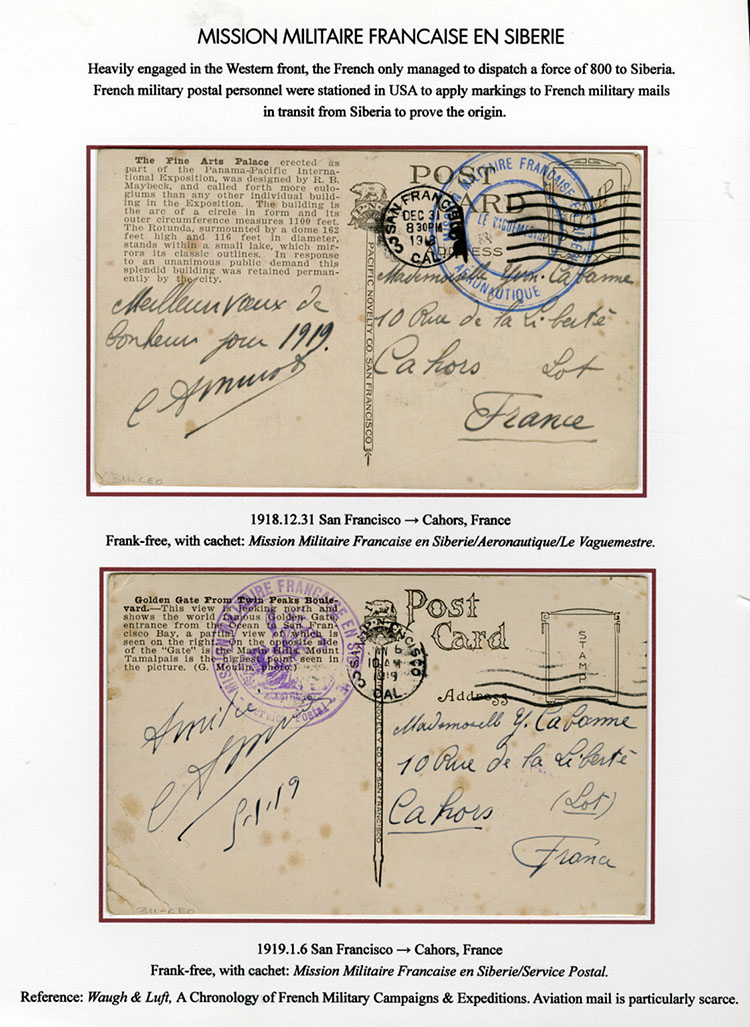 MISSION MILITAIRE FRANCAISE EN SIBERIE
Heavily engaged in the Western front, the French only managed to dispatch a force of 800 to Siberia.
French military postal personnel were stationed in USA to apply markings to French military mails
in transit from Siberia to prove the origin.
The Fine Arts Palace erected as
part of the Panama-Pacific Interna-
tional Exposition, was designed by R. B.
Maybeck, and called forth more eulo-
giums than any other individual build-
ing in the Exposition. The building is
the arc of a circle in form and its
outer circumference measures 1100 feet.
The Rotunda, surmounted by a dome 162
feet high and 116 feet in diameter,
stands within a small lake, which mir-
rors its classic outlines. In response
to an unanimous public demand this
splendid building was retained perman-
ently by the city.
Meilleurs vœux de
bonheur pour 1919.
PACIFIC NOVELTY CO. SAN FRANCISCO
POST CARD
SAN FRANCISCO
DEC 31
830PM
1918
3 CAL.
MILITAIRE FRANCAISE
LE VAGUEMESTRE
AERONAUTIQUE
Mademoiselle Yvon. Cabanne
10 Rue de la Liberté
Cahors Lot
France
311-CEO
1918.12.31 San Francisco → Cahors, France
Frank-free, with cachet: Mission Militaire Francaise en Siberie/Aeronautique/Le Vaguemestre.
Golden Gate From Twin Peaks Boule-
vard.—This view is looking north and
shows the world famous Golden Gate,
entrance from the ocean to San Fran-
cisco Bay, a partial view of which is
seen on the right. On the opposite side
of the "Gate" is the Marin Hills. Mount
Tamalpais is the highest point seen in
the picture. (G. Moulin, photo.)
MISSION MILITAIRE FRANCAISE EN SIBERIE
Service Postal
Amitiés
5.1.19
Post
Card
10 AM
1919
3 CAL
STAMP
Address
Mademoiselle Y. Cabanne
10 Rue de la Liberté
Cahors (Lot)
France
311-CEO
1919.1.6 San Francisco → Cahors, France
Frank-free, with cachet: Mission Militaire Francaise en Siberie/Service Postal.
Reference: Waugh & Luft, A Chronology of French Military Campaigns & Expeditions. Aviation mail is particularly scarce.